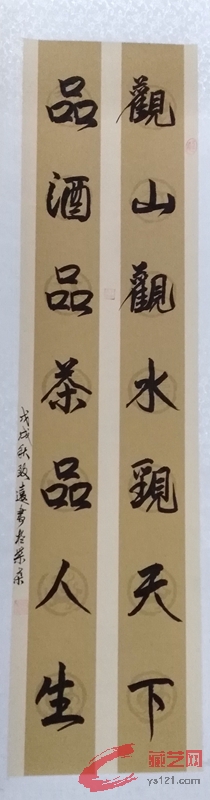 觀山觀水覌天下
品酒品茶品人生
戊戌秋致遠書於
藏艺网
ys121.com